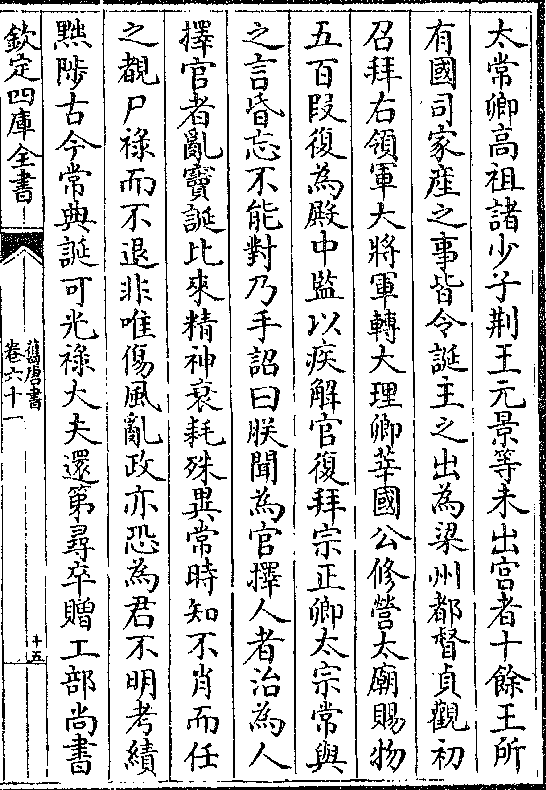 太常卿高祖諸少子荆王元景等未出宫者十餘王所
有國司家産之事皆令誕主之出為梁州都督貞觀初
召拜右領軍大將軍轉大理卿莘國公修營太廟賜物
五百段復為殿中監以疾解官復拜宗正卿太宗常與
之言昏忘不能對乃手詔曰朕聞為官擇人者治為人
擇官者亂竇誕比來精神衰耗殊異常時知不肖而任
之覩尸祿而不退非唯傷風亂政亦恐為君不明考績
黜陟古今常典誕可光祿大夫還第尋卒贈工部尚書
欽定四庫全書
舊唐書
卷六十一
十五